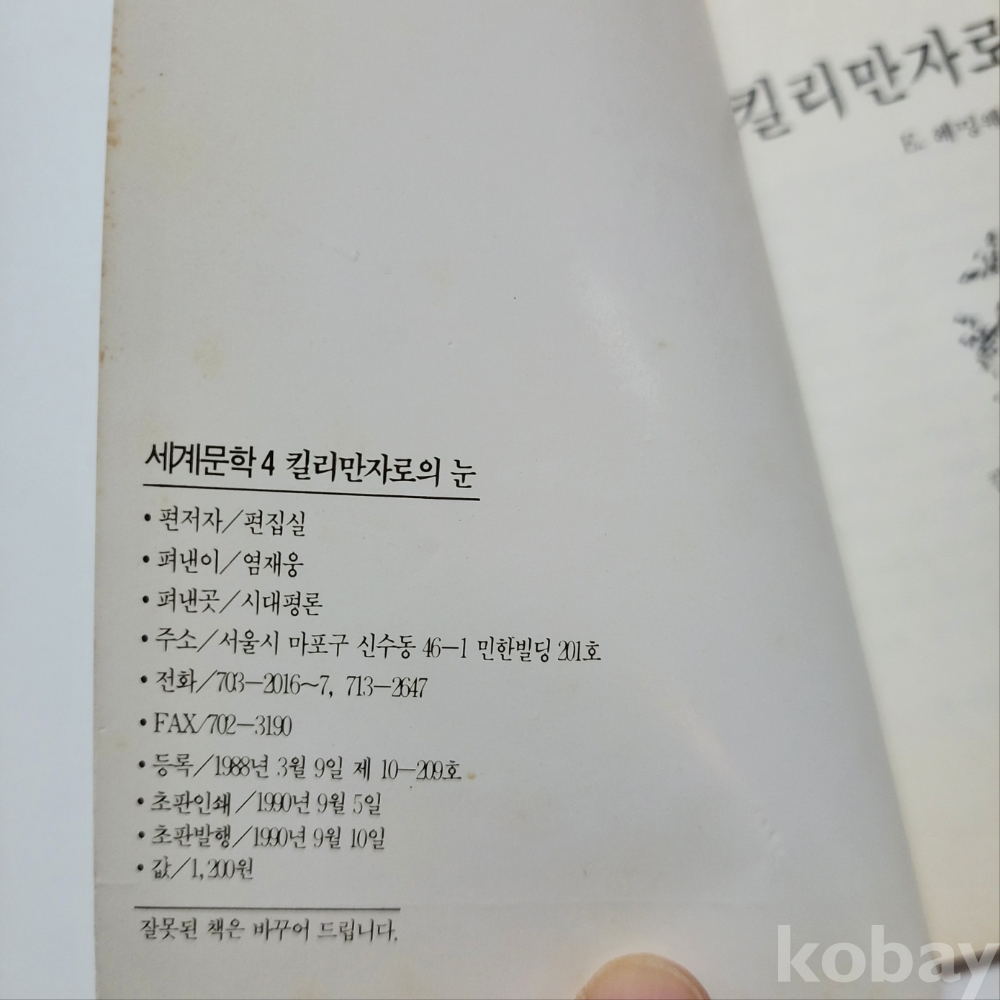 킬리만자로
E. 헤밍웨
세계문학 4 킬리만자로의 눈
• 편저자/편집실
• 펴낸이/염재웅
• 펴낸곳/시대평론
• 주소/서울시 마포구 신수동 46-1 민한빌딩 201호
• 전화/703-2016~7, 713-2647
• FAX/702-3190
• 등록/1988년 3월 9일 제 10-209호
• 초판인쇄/1990년 9월 5일
• 초판발행/1990년 9월 10일
• 값/1,200원
잘못된 책은 바꾸어 드립니다.
kobay